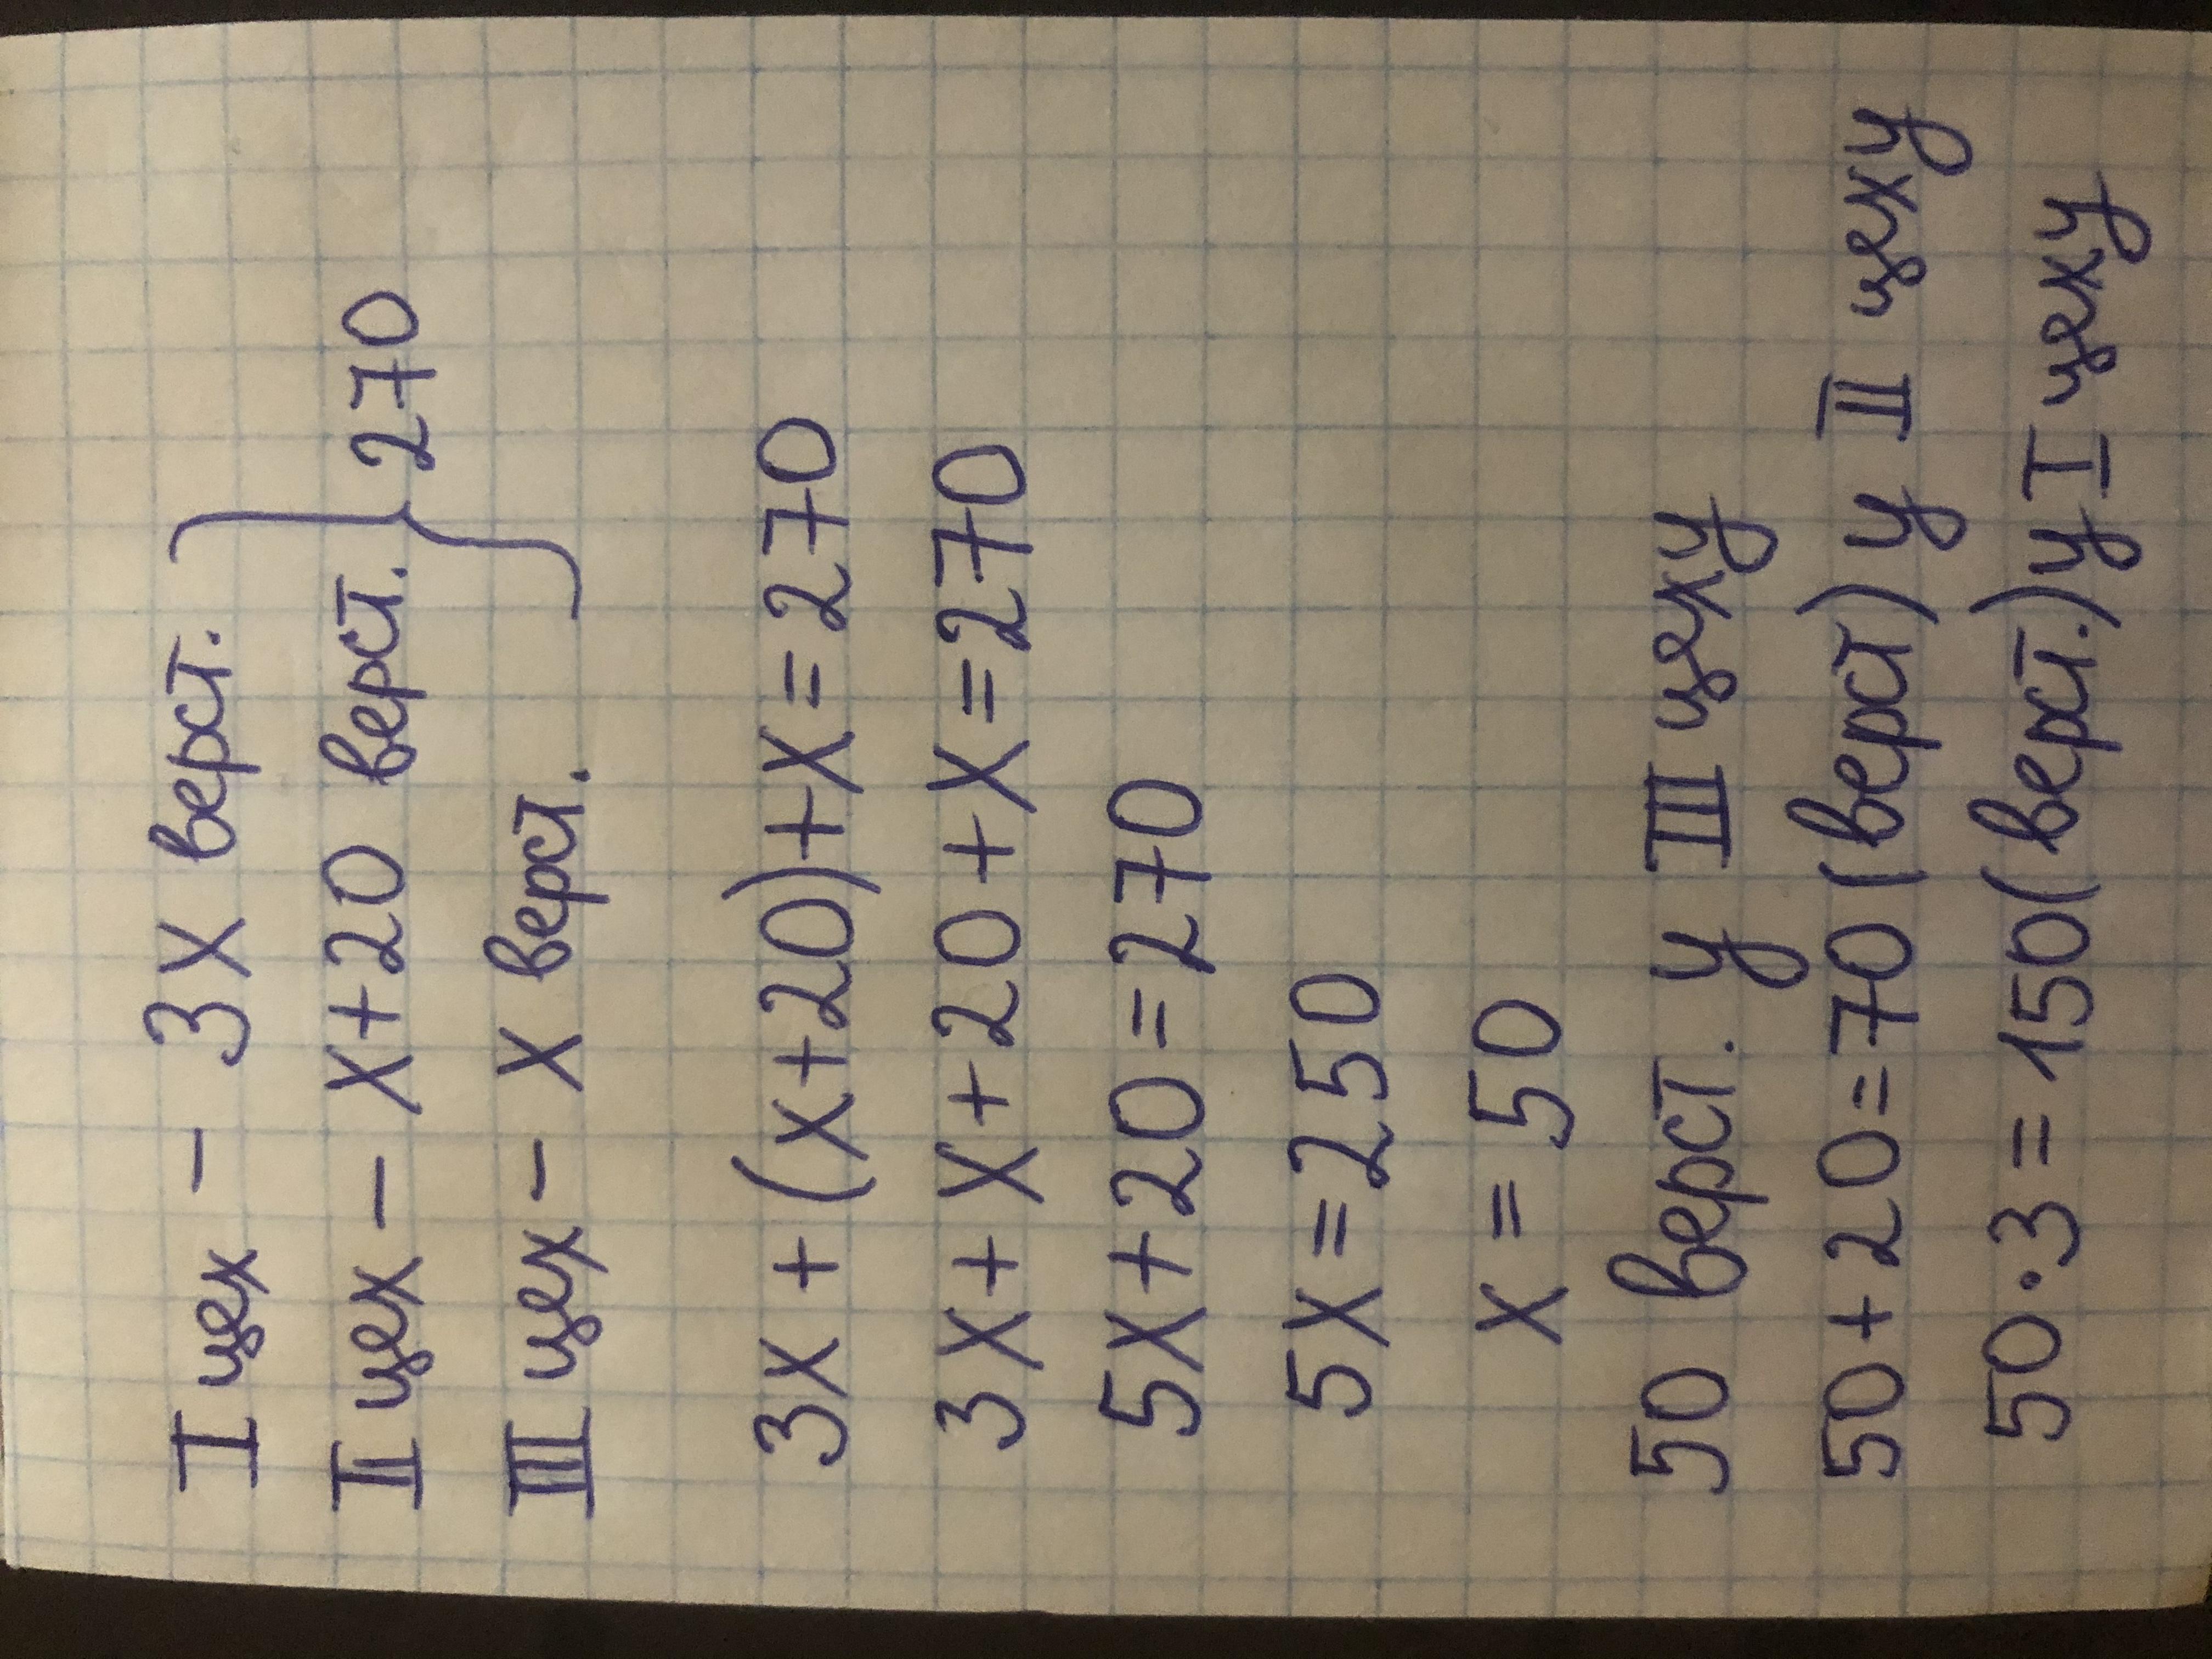 I цех - 3х верст.
II цех - х+20 верст. } 270
III цех - х верст.
3х + (х+20)+х = 270
3х + х + 20 + х = 270
5х + 20 = 270
5х = 250
х = 50
50 верст. у III цеху
50 + 20 = 70 (верст) у II цеху
50 · 3 = 150 (верст.) у I цеху